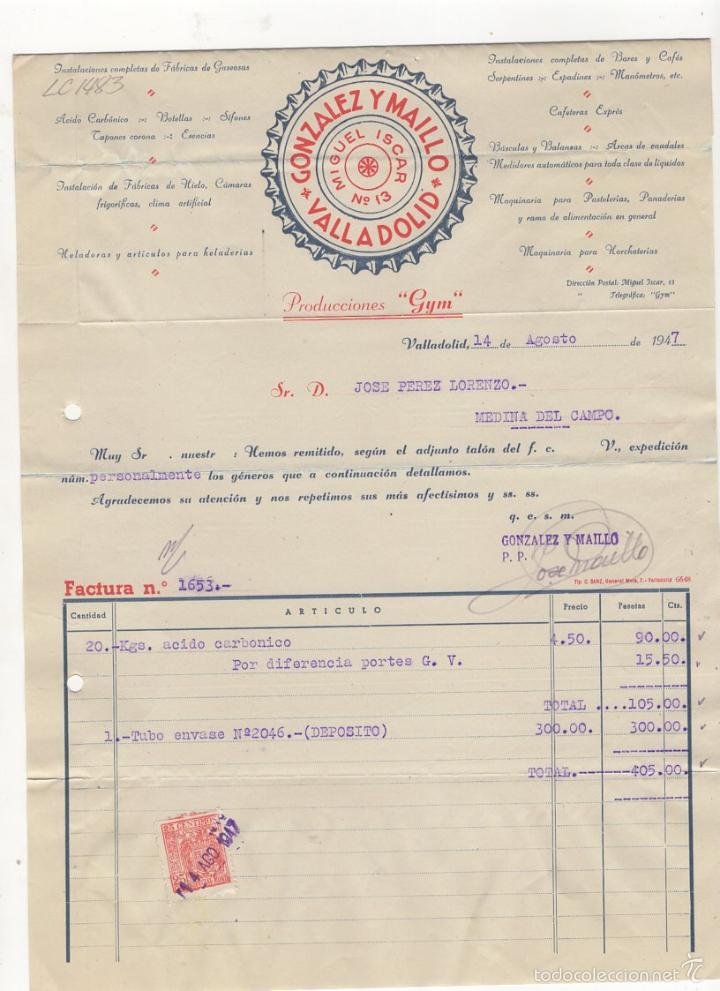 Instalaciones completas de Fábricas de Gaseosas
LC1483
Acido Carbónico -:- Botellas -:- Sifones
Tapones corona -:- Esencias
Instalación de Fábricas de Hielo, Cámaras
frigoríficas, clima artificial
Heladoras y artículos para heladerías
GONZALEZ Y MAILLO
MIGUEL ISCAR
Nº 13
VALLADOLID
Instalaciones completas de Bares y Cafés
Serpentines -:- Espadines -:- Manómetros, etc.
Cafeteras Exprés
Básculas y Balanzas -:- Arcas de caudales
Medidores automáticos para toda clase de líquidos
Maquinaria para Pastelerías, Panaderías
y ramo de alimentación en general
Maquinaria para Horchaterías
Dirección Postal: Miguel Iscar, 13
" Telegráfica: "Gym"
Producciones "Gym"
Valladolid, 14 de Agosto de 1947
Sr. D. JOSE PEREZ LORENZO.-
MEDINA DEL CAMPO.
Muy Sr . nuestr : Hemos remitido, según el adjunto talón del f. c. V., expedición
núm. personalmente los géneros que a continuación detallamos.
Agradecemos su atención y nos repetimos sus más afectísimos y ss. ss.
q. e. s. m.
GONZALEZ Y MAILLO
P. P.
Jose Maillo
Tip. G. SANZ, General Mola, 7.-Valladolid 6648
Factura n.º 1653.-
Cantidad ARTICULO Precio Pesetas Cts.
20.-Kgs. acido carbonico 4.50. 90.00.
Por diferencia portes G. V. 15.50.
TOTAL ....105.00.
1.-Tubo envase Nº2046.-(DEPOSITO) 300.00. 300.00.
TOTAL.-------405.00.
25 CENTIMOS
14 AGO 1947
todocoleccion.net